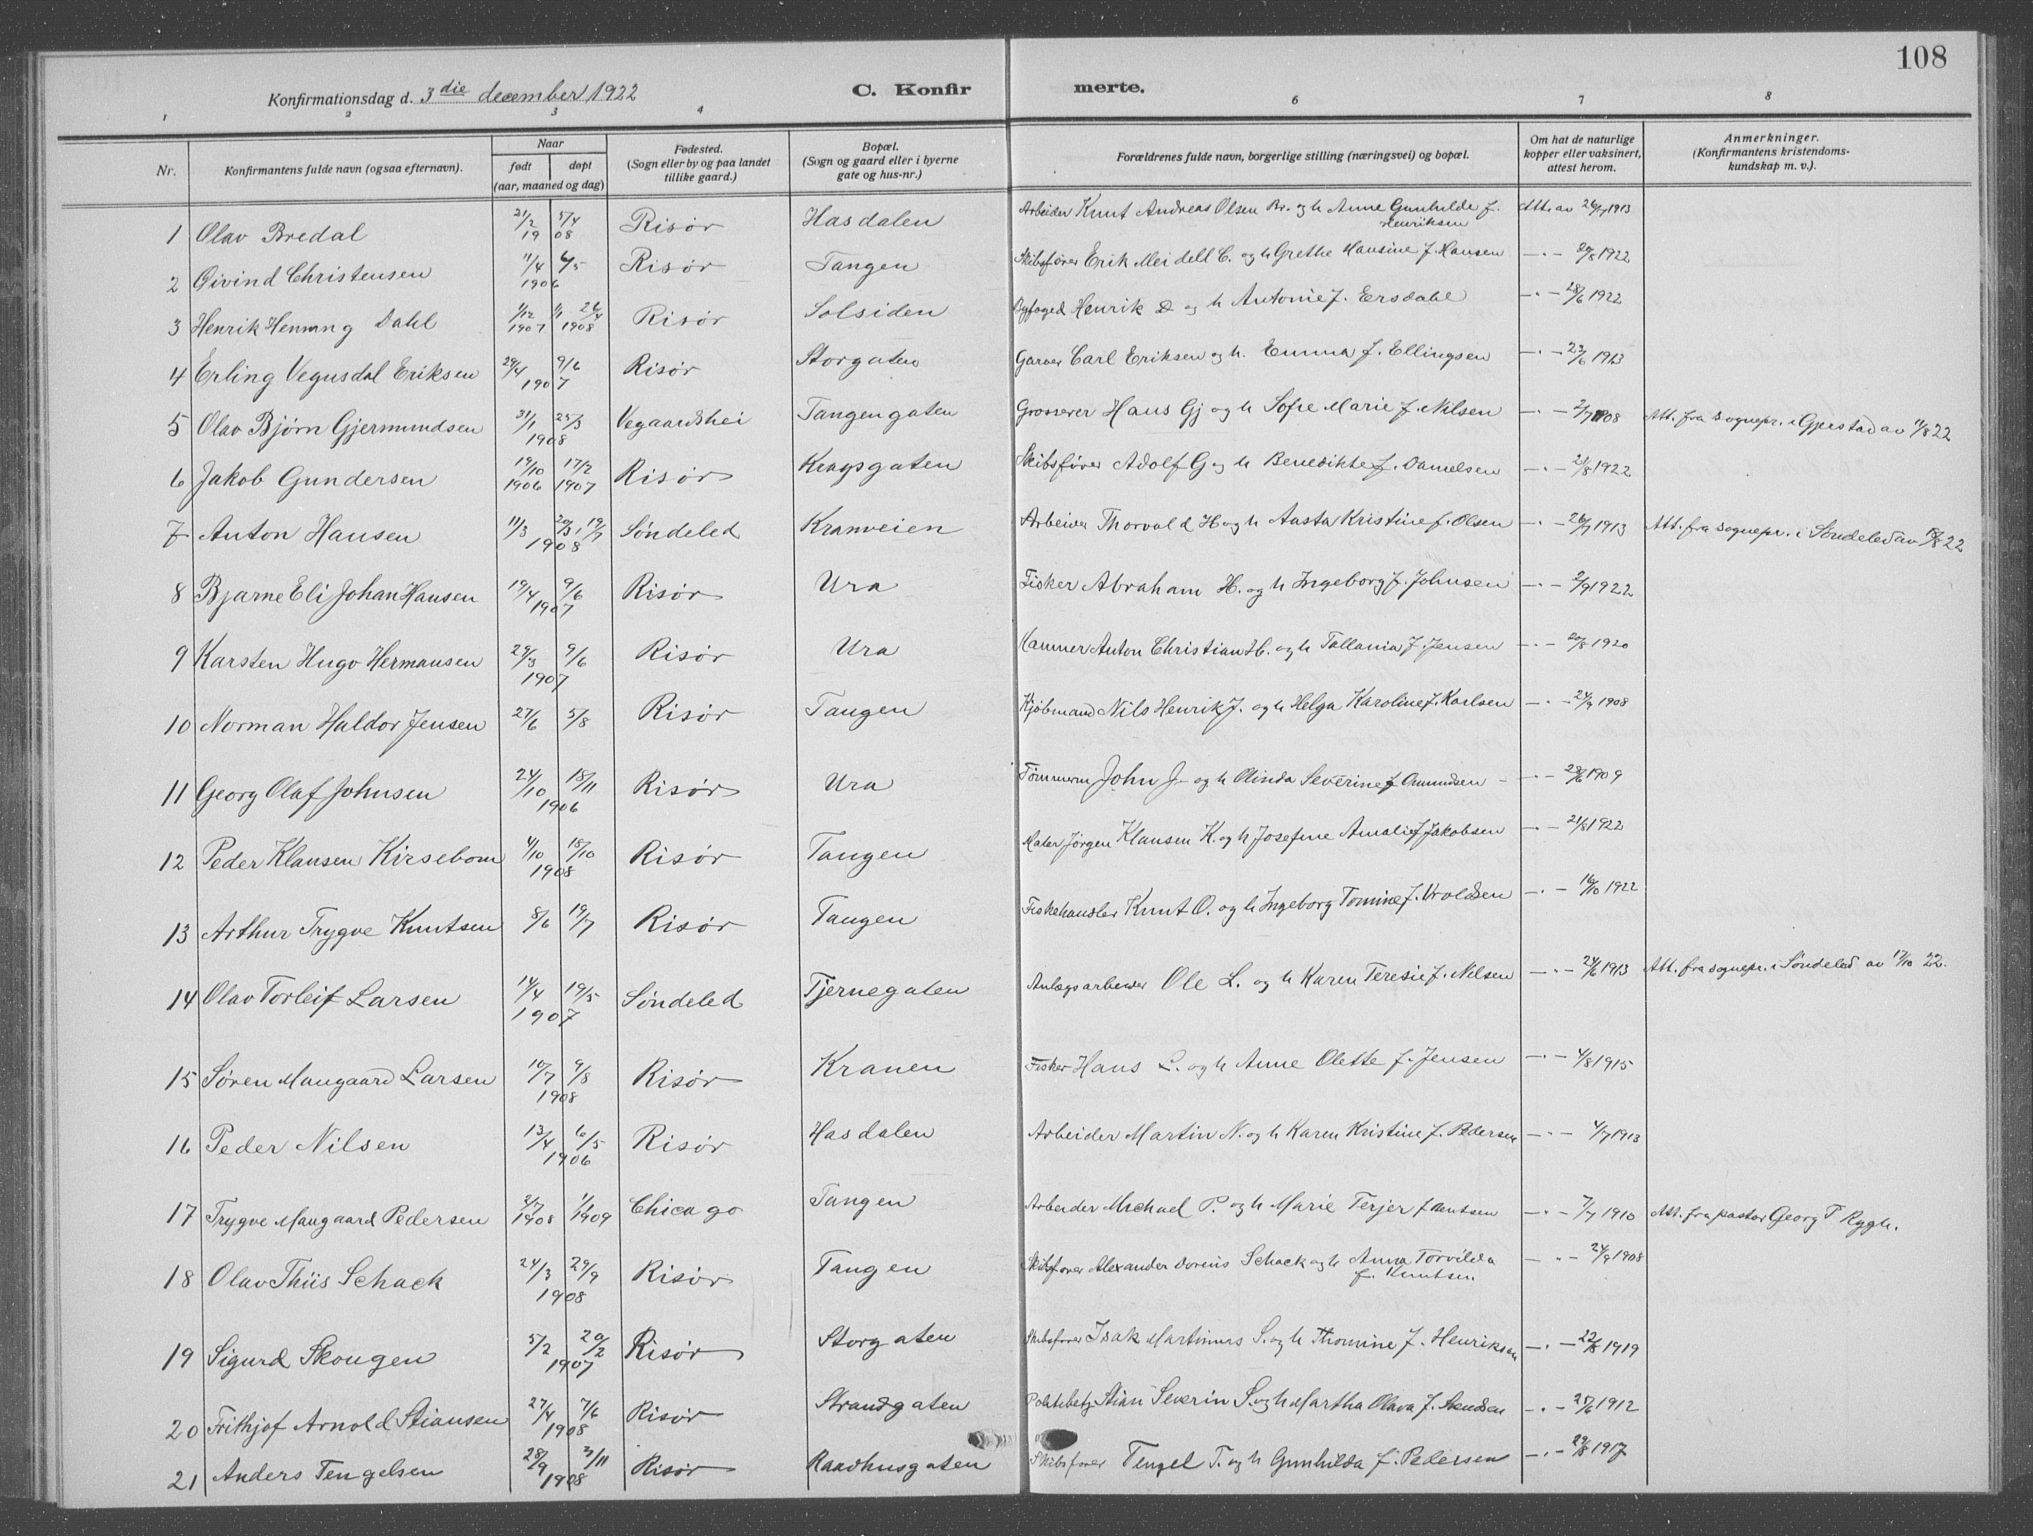 108
Konfirmationsdag d. 3die december 1922 C. Konfirmerte.
1 2 3 4 6 7 8
Nr. Konfirmantens fulde navn (ogsaa efternavn). Naar født døpt (aar, maaned og dag) Fødested. (Sogn eller by og paa landet tillike gaard.) Bopæl. (Sogn og gaard eller i byerne gate og hus-nr.) Forældrenes fulde navn, borgerlige stilling (næringsvei) og bopæl. Om hat de naturlige kopper eller vaksinert, attest herom. Anmerkninger. (Konfirmantens kristendoms-kundskap m. v.).
1 Olav Bredal 21/2 5/4 1908 Risør Hasdalen Arbeider Knut Andreas Olsen Br. og h Anne Gunhilde f. Henriksen Att. av 26/7 1913
2 Øivind Christensen 11/4 6/5 1906 Risør Tangen Skibsfører Erik Meidell C. og h Grethe Hansine f. Hansen —·— 20/8 1922
3 Henrik Henning Dahl 1/12 1907 1908 26/4 Risør Solsiden Byfoged Henrik D og h Antonie f. Ersdahl —·— 28/6 1922
4 Erling Vegusdal Eriksen 29/4 9/6 1907 Risør Storgaten Garver Carl Eriksen og h. Emma f. Ellingsen —·— 23/6 1913
5 Olav Bjørn Gjermundsen 31/1 25/3 1908 Vegaardshei Tangengaten Grosserer Hans Gj og h Sofie Marie f. Nilsen —·— 2/7 1908 Att. fra sognepr. i Gjerstad av 11/8 22
6 Jakob Gundersen 19/10 1906 17/2 1907 Risør Kragsgaten Skibsfører Adolf G og h Benedikte f. Danielsen —·— 21/8 1922
7 Anton Hansen 11/3 29/3, 19/7 1908 Søndeled Kranveien Arbeider Thorvald H og h Aasta Kristine f. Olsen —·— 26/7 1913 Att. fra sognepr. i Søndeled av 18/8 22
8 Bjarne Eli Johan Hansen 19/4 9/6 1907 Risør Ura Fisker Abraham H. og h Ingeborg f. Johnsen —·— 2/9 1922
9 Karsten Hugo Hermansen 29/3 9/6 1907 Risør Ura Anton Christian H. og h Tallania f. Jensen —·— 20/8 1920
10 Norman Haldor Jensen 27/6 5/8 Risør Tangen Kjøbmand Nils Henrik J. og h Helga Karoline f. Karlsen —·— 24/9 1908
11 Georg Olaf Johnsen 24/10 18/11 1906 Risør Ura Tømmerm John J. og h Olinda Severine f Omundsen —·— 28/6 1909
12 Peder Klausen Kirsebom 4/10 18/10 1908 Risør Tangen Maler Jørgen Klausen K. og h Josefine Amalie f Jakobsen —·— 21/8 1922
13 Arthur Trygve Knutsen 8/6 19/7 Risør Tangen Fiskehandler Knut O. og h Ingeborg Tomine f. Vroldsen —·— 16/10 1922
14 Olav Torleif Larsen 14/4 19/5 1907 Søndeled Tjernegaten Anlægsarbeider Ole L. og h Karen Teresie f. Nilsen —·— 24/6 1913 Att. fra sognepr. i Søndeled av 17/10 22.
15 Søren Maugaard Larsen 10/7 9/8 1908 Risør Kranen Fisker Hans L. og h Anne Olette f. Jensen —·— 4/8 1915
16 Peder Nilsen 13/4 6/5 1906 Risør Hasdalen Arbeider Martin N. og h Karen Kristine f. Pedersen —·— 4/7 1913
17 Trygve Maugaard Pedersen 2/7 1908 1909 Chicago Tangen Arbeider Michael P. og h Marie Terjer f Knutsen —·— 7/7 1910 Att. fra pastor Georg T Rygh.
18 Olav Thiis Schack 24/3 29/9 1908 Risør Tangen Skibsfører Alexander Dorenis Schack og h Anna Torvilda f. Knutsen —·— 24/9 1908
19 Sigurd Skougen 5/2 20/2 1907 Risør Storgaten Skibsfører Isak Martinius S. og h Thomine f. Henriksen —·— 22/8 1919
20 Frithjof Arnold Stiansen 27/4 7/6 1908 Risør Strandgaten Politibetj Stian Severin S. og h Martha Olava f. —·— 25/6 1912
21 Anders Tengelsen 28/9 3/11 1908 Risør Raadhusgaten Skibsfører Tengel T. og h Gunhilda f. Pedersen —·— 29/8 1917